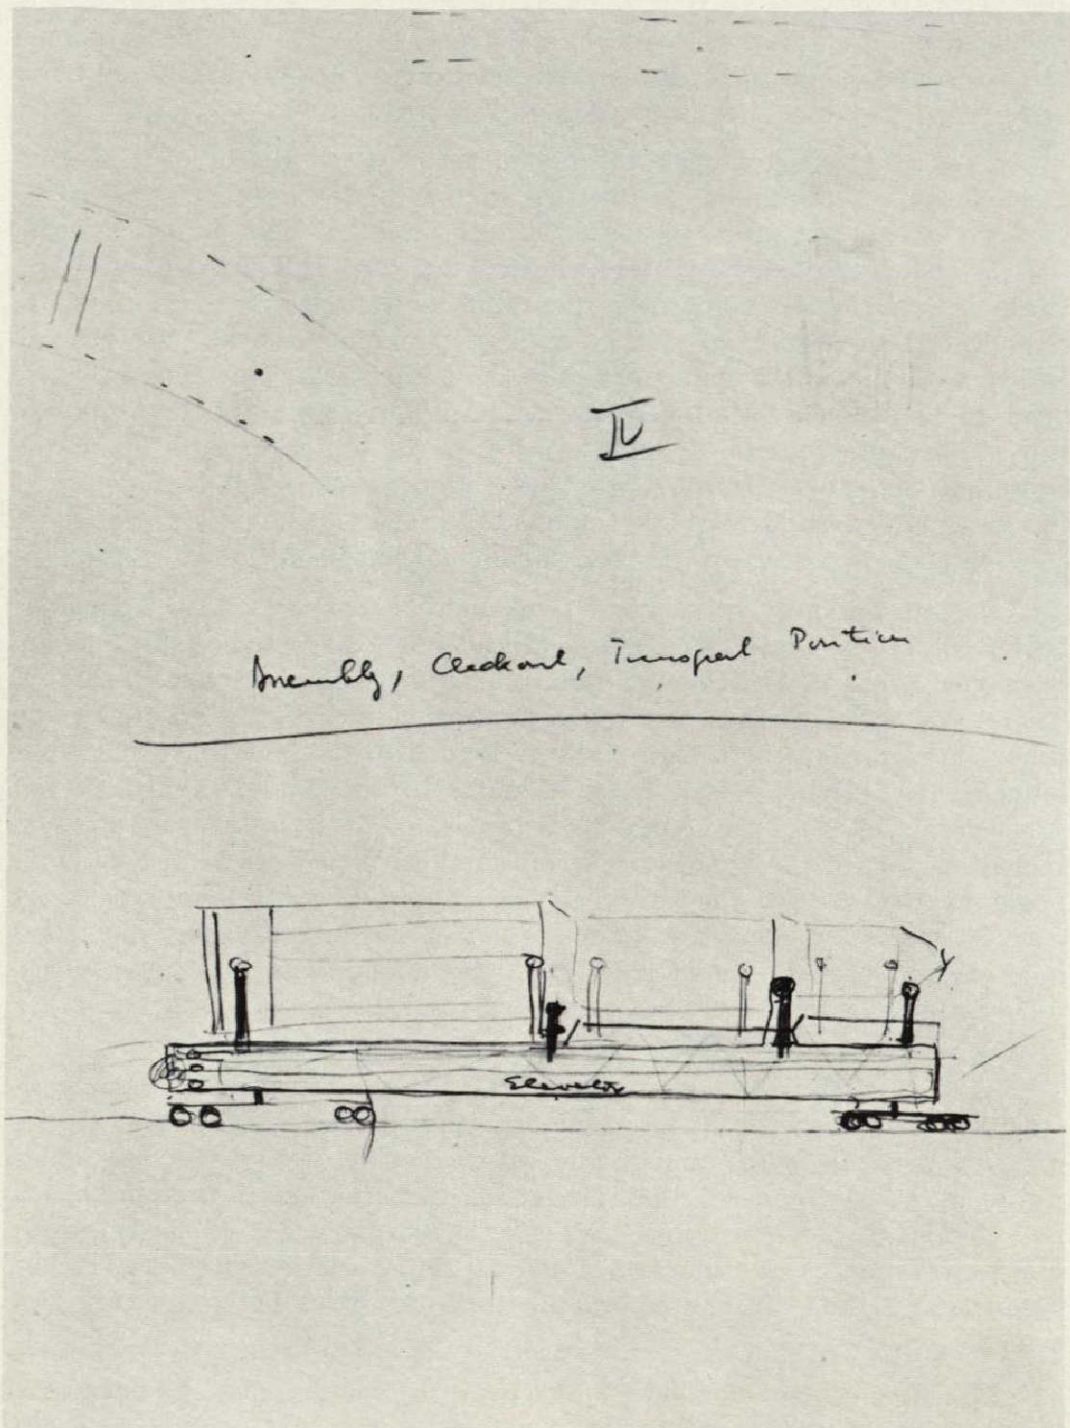 IV
Assembly, Checkout, Transport Position
Elevator